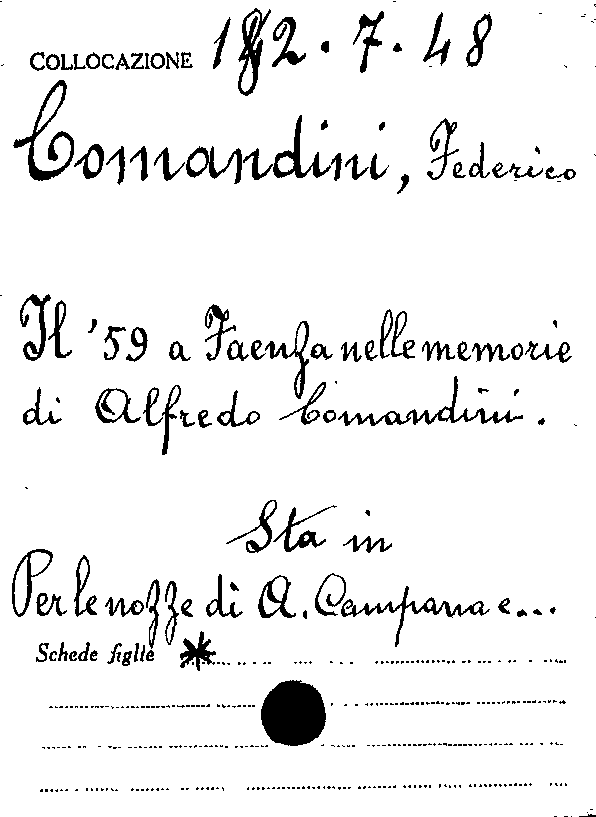 COLLOCAZIONE 142.7.48
Comandini, Federico
Il '59 a Faenza nelle memorie
di Alfredo Comandini.
Sta in
Per le nozze di A. Campana e...
Schede figlie *